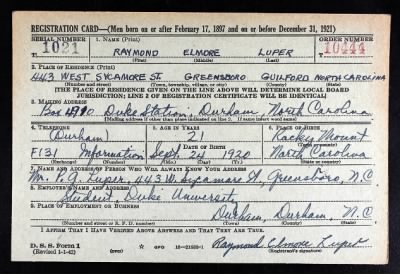 REGISTRATION CARD—(Men born on or after February 17, 1897 and on or before December 31, 1921)
SERIAL NUMBER 1. NAME (Print) ORDER NUMBER
1021 RAYMOND ELMORE LUPER 10444
(First) (Middle) (Last)
2. PLACE OF RESIDENCE (Print)
443 WEST SYCAMORE ST. GREENSBORO GUILFORD NORTH CAROLINA
(Number and street) (Town, township, village, or city) (County) (State)
[THE PLACE OF RESIDENCE GIVEN ON THE LINE ABOVE WILL DETERMINE LOCAL BOARD
JURISDICTION; LINE 2 OF REGISTRATION CERTIFICATE WILL BE IDENTICAL]
3. MAILING ADDRESS
Box 4990 Duke Station, Durham, North Carolina
[Mailing address if other than place indicated on line 2. If same insert word same]
4. TELEPHONE 5. AGE IN YEARS 6. PLACE OF BIRTH
(Durham) 21 Rocky Mount
DATE OF BIRTH (Town or county)
F131 Information Sept. 24, 1920 North Carolina
(Exchange) (Number) (Mo.) (Day) (Yr.) (State or country)
7. NAME AND ADDRESS OF PERSON WHO WILL ALWAYS KNOW YOUR ADDRESS
Mr. Luper, 443 W. Sycamore St, Greensboro, N.C
8. EMPLOYER'S NAME AND ADDRESS
Student, Duke University
9. PLACE OF EMPLOYMENT OR BUSINESS
Durham, Durham, N.C
(Number and street or R. F. D. number) (Town) (County) (State)
I AFFIRM THAT I HAVE VERIFIED ABOVE ANSWERS AND THAT THEY ARE TRUE.
D. S. S. Form 1
(Revised 1-1-42) (over) ☆ GPO 16—21630-1 Raymond Elmore Luper